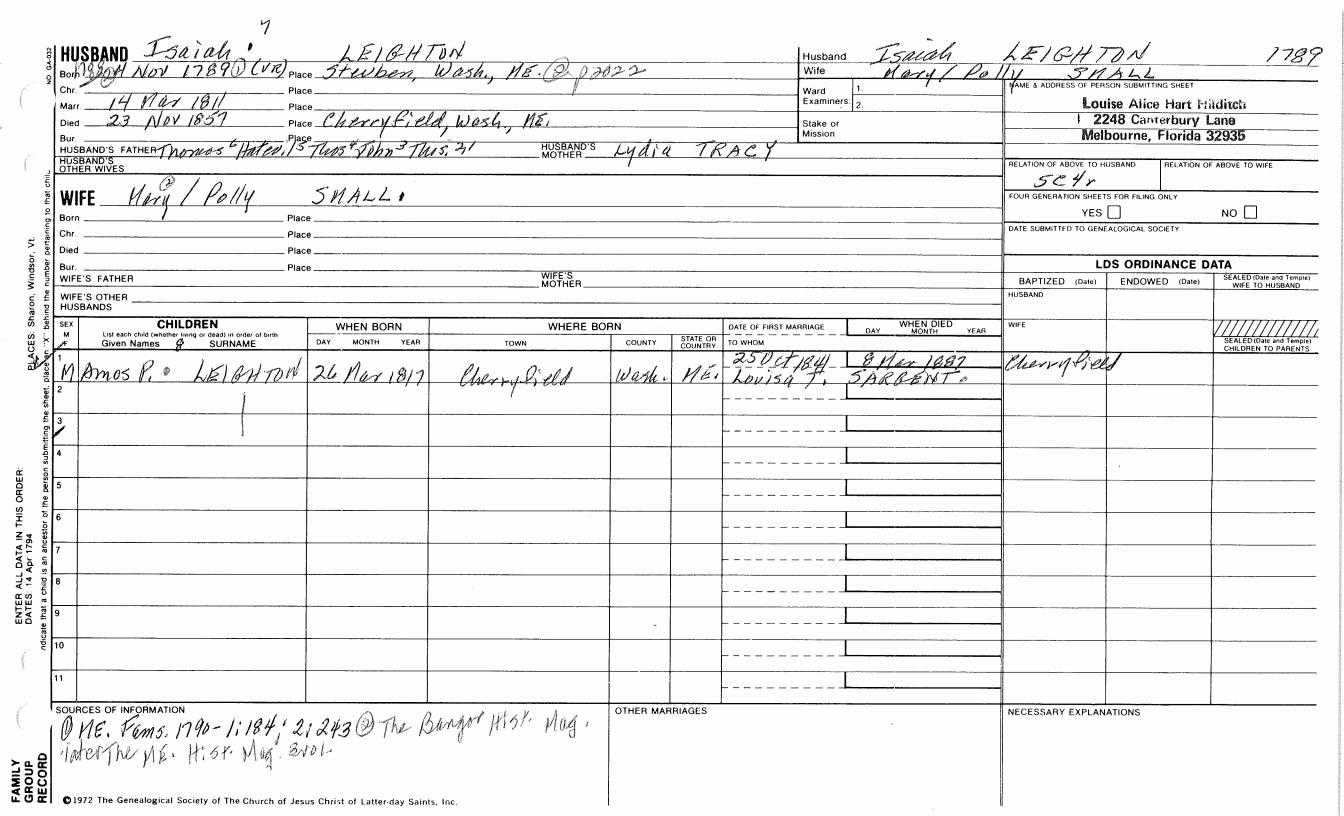 7
HUSBAND Isaiah LEIGHTON
Born Nov 1789 ① (VR) Place Steuben, Wash., ME. ② p2022
Chr. Place
Marr. 14 Mar 1811 Place
Died 23 Nov 1857 Place Cherryfield, Wash., ME.
Bur. Place
HUSBAND'S FATHER Thomas HUSBAND'S MOTHER Lydia TRACY
HUSBAND'S OTHER WIVES
Husband Isaiah LEIGHTON 1789
Wife Mary / Polly SMALL
Ward Examiners: 1.
2.
Stake or Mission
NAME & ADDRESS OF PERSON SUBMITTING SHEET
Louise Alice Hart Hilditch
2248 Canterbury Lane
Melbourne, Florida 32935
RELATION OF ABOVE TO HUSBAND RELATION OF ABOVE TO WIFE
5C4r
FOUR GENERATION SHEETS FOR FILING ONLY
YES NO
DATE SUBMITTED TO GENEALOGICAL SOCIETY
WIFE Mary ② / Polly SMALL
Born Place
Chr. Place
Died Place
Bur. Place
WIFE'S FATHER WIFE'S MOTHER
WIFE'S OTHER HUSBANDS
LDS ORDINANCE DATA
BAPTIZED (Date) ENDOWED (Date) SEALED (Date and Temple) WIFE TO HUSBAND
HUSBAND
WIFE
SEALED (Date and Temple) CHILDREN TO PARENTS
SEX M F
CHILDREN
List each child (whether living or dead) in order of birth
Given Names SURNAME
WHEN BORN
DAY MONTH YEAR
WHERE BORN
TOWN COUNTY STATE OR COUNTRY
DATE OF FIRST MARRIAGE
TO WHOM
WHEN DIED
DAY MONTH YEAR
1 25 Oct 1841 8 Mar 1887 Cherryfield
M Amos P. LEIGHTON 26 Mar 1817 Cherryfield Wash. ME. Louisa T. SARGENT.
2
3
4
5
6
7
8
9
10
11
SOURCES OF INFORMATION
① ME. Fams. 1790-1:184; 2:243 ② The Bangor Hist. Mag.
later The ME. Hist. Mag. 3vol.
OTHER MARRIAGES
NECESSARY EXPLANATIONS
©1972 The Genealogical Society of The Church of Jesus Christ of Latter-day Saints, Inc.
NO GA-032
PLACES: Sharon, Windsor, Vt.
ENTER ALL DATA IN THIS ORDER:
DATES: 14 Apr 1794
ndicate that a child is an ancestor of the person submitting the sheet, place an "X" behind the number pertaining to that chil
FAMILY GROUP RECORD